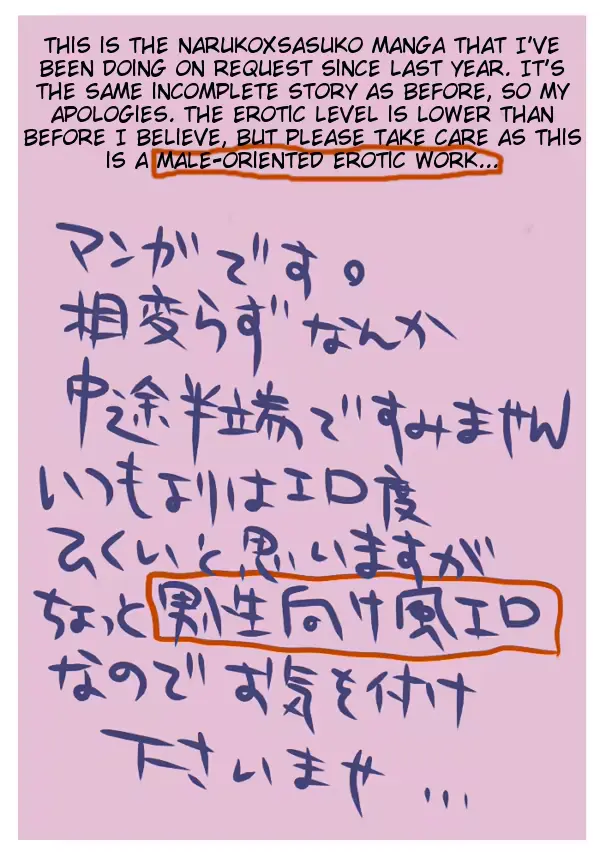 THIS IS THE NARUKOXSASUKO MANGA THAT I'VE
BEEN DOING ON REQUEST SINCE LAST YEAR. IT'S
THE SAME INCOMPLETE STORY AS BEFORE, SO MY
APOLOGIES. THE EROTIC LEVEL IS LOWER THAN
BEFORE I BELIEVE, BUT PLEASE TAKE CARE AS THIS
IS A MALE-ORIENTED EROTIC WORK...
マンガです。
相変らずなんか
中途半端ですみません
いつもよりはエロ度
ひくいと思いますが
ちょっと男性向け風エロ
なのでお気を付け
下さいませ...